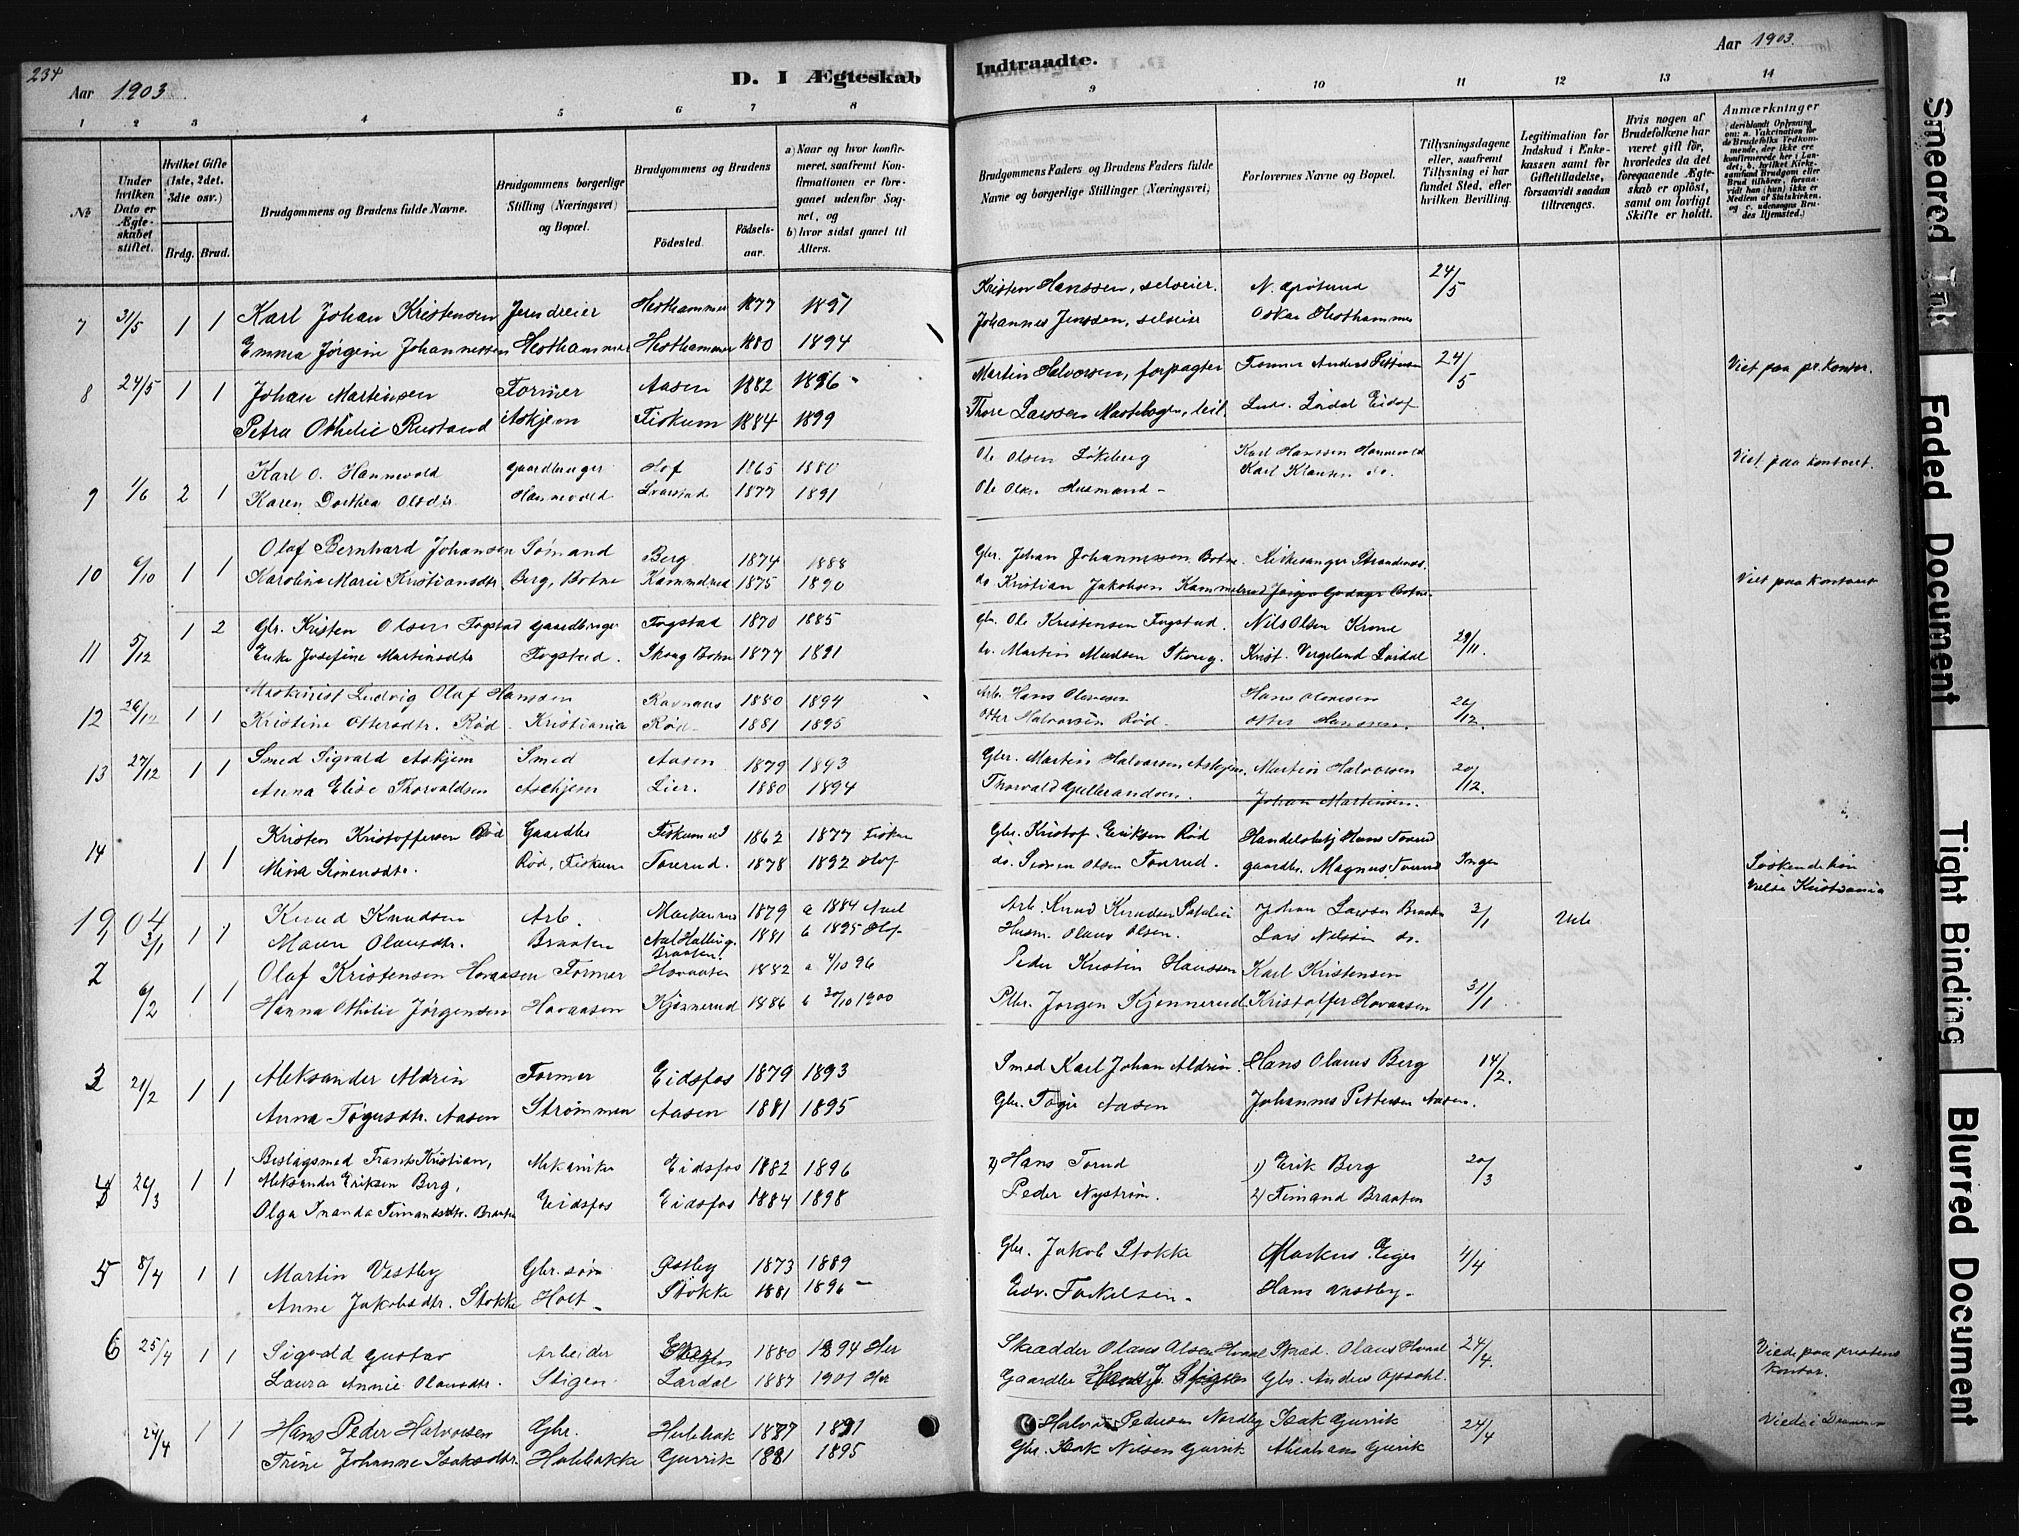 234
Aar 1903.
D. I Ægteskab
Indtraadte.
Aar 1903.
1 2 3 4 5 6 7 8 9 10 11 12 13 14
№
Under hvilken Dato er Ægteskabet stiftet.
Hvilket Gifte (1ste, 2det, 3die osv.)
Brdg. Brud.
Brudgommens og Brudens fulde Navne.
Brudgommens borgerlige Stilling (Næringsvei) og Bopæl.
Brudgommens og Brudens
Fødested.
Fødselsaar.
a) Naar og hvor konfirmeret, saafremt Konfirmationen er foregaaet udenfor Sognet, og
b) hvor sidst gaaet til Alters.
Brudgommens Faders og Brudens Faders fulde Navne og borgerlige Stillinger (Næringsvei)
Forlovernes Navne og Bopæl.
Tillysningsdagene eller, saafremt Tillysning ei har fundet Sted, efter hvilken Bevilling.
Legitimation for Indskud i Enkekassen samt for Giftetilladelse, forsaavidt saadan tiltrænges.
Hvis nogen af Brudefolkene har været gift før, hvorledes da det foregaaende Ægteskab er opløst, samt om lovligt Skifte er holdt.
Anmærkninger
deriblandt Oplysning om: a. Vakcination for de Brudefolks Vedkommende, der ikke ere konfirmerede her i Landet, b. hvilket Kirkesamfund Brudgom eller Brud tilhører, forsaavidt han (hun) ikke er Medlem af Statskirken, og c. udensogns Brudes Hjemsted.
7 31/5 1 1 Karl Johan Kristensen Hesthammer 1877 1891 Kristen Hanssen, selveier. N. Grøtund 24/5
Emma Jørgine Johannessen Hesthammer Hesthammer 1880 1894 Johannes Jenssen, selveier Oskar Hesthammer
8 24/5 1 1 Johan Martinsen Former Aasen 1882 1896 - Martin Halvorsen, forpagter Former Anders Pettersen 24/5 Viet paa pr. kontor.
Petra Othilie Rustand Askjem Fiskum 1884 1899 Thore Larssen
9 1/6 2 1 Karl O. Hannevold gaardbruger Hof 1865 1880 Ole Olsen Løkeberg Karl Hanssen Hannevold Viet paa kontoret.
Karen Dorthea Olsdtr Hannevold 1877 1891 Ole Olsen Husmand - Karl Klausen do.
10 6/10 1 1 Olaf Bernhard Johansen Sømand Berg 1874 1888 Gbr. Johan Johannessen Botne. Kirkesanger Strandenes. Viet paa kontoret
Karoline Marie Kristiansdtr. Berg, Botne 1875 1890 do Kristian Jakobsen
11 5/12 1 2 Gbr. Kristen Olsen Fogstad gaardbruger Fogstad 1870 1885 Gbr. Ole Kristensen Fogstad. Nils Olsen Krone 29/11.
Enke Josefine Martinsdtr Fogstad. Skoug Botne 1877 1891 do. Martin Madsen Skoug. Krist. Vegeland Lardal
12 26/12 1 1 Maskinist Ludvig Olaf Hanssen Ravnaas 1880 1894 Arb. Hans Olavesen Hans Olavesen 26/12.
Kristine Ottersdtr. Rød Kristiania Rød 1881 1895 Otter Halvorsen Rød. Otter Hanssen.
13 27/12 1 1 Smed Sigvald Askjem Smed Aasen 1879 1893 Gbr. Martin Halvorsen Askjem Martin Halvorsen 20/12.
Anna Elise Thorvaldsen Askjem Lier. 1880 1894 Thorvald Gulbrandsen. Johan Martinsen.
14 1 1 Kristen Kristoffersen Rød Gaardbr Fiskum 1862 1877 Fiskum Gbr. Kristof. Eriksen Rød Ingen
Mina Simensdtr. Rød, Fiskum Torrud. 1878 1892 Hof do. Simen Olsen Torrud. gaardbr. Magnus Torrud
1904
1 3/1 1 1 Knud Knudsen Arb. 1879 a 1884 Aal Arb. Knud Knudsen Johan Larsen Braaten 3/1
Maren Olausdtr. Braaten Aal Halling. Braaten. 1881 b 1895 Hof Husm. Olaus Olsen. Lars Nilssen do.
2 6/2 1 1 Olaf Kristensen Hovaasen Former Hovaasen 1882 a 4/10 96 Peder Kristin Hanssen Karl Kristensen 31/1.
Hanna Othilie Jørgensen Hovaasen Kjønnerud 1886 b 20/10 1900 Jørgen Kjønnerud Kristoffer Hovaasen
3 21/2 1 1 Aleksander Aldrin Former Eidsfos 1879 1893 Smed Karl Johan Aldrin Hans Olaus Berg 14/2.
Anna Tøgersdtr. Aasen Strømmen Aasen 1881 1895 Gbr. Tøger Aasen Johannes Pettersen Aasen.
4 26/3 1 1 Beslagsmed Frants Kristian, Mekaniker Eidsfos 1882 1896 1) Hans Torud 1) Erik Berg 20/3
Aleksander Eriksen Berg,
Olga Inanda Timandsdtr. Braaten Eidsfos Eidsfos 1884 1898 Peder Nystrøm. 2) Timand Braaten
5 8/4 1 1 Martin Vestby Gbr. søn Østby 1873 1889 Gbr. Jakob Stokke Markus Eger 4/4
Anne Jakobsdtr. Stokke Holt - Stokke 1881 1896 - Edv. Torkelsen - Hans Vestby -
6 25/4 1 1 Sigvald Gustav Arbeider 1880 1894 Her Skrædder Olaus Olsen Hvaal Skræd. Olaus Hvaal 24/4. Viede paa prestens kontor.
Laura Annie Olausdtr. Stigen Lardal 1887 1901 Her Gaardbr Gbr. Anders Opsahl.
24/4 1 1 Hans Peder Halvorsen Gbr. Holtebak 1877 1891 Halvor Pedersen Nordby Isak Gurrik 24/4 Viede i Drammen
Trine Johanne Isaksdtr. Holebakke Gurrik 1881 1895 Gbr. Isak Nilsen Gurrik Abraham Gurrik
Smeared Ink
Faded Document
Tight Binding
Blurred Document